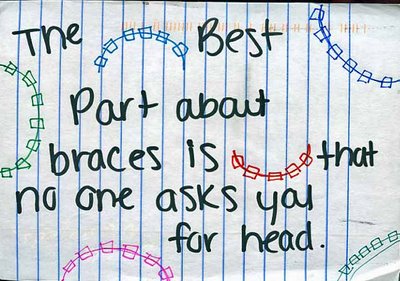 The Best
Part about
braces is that
no one asks you
for head.